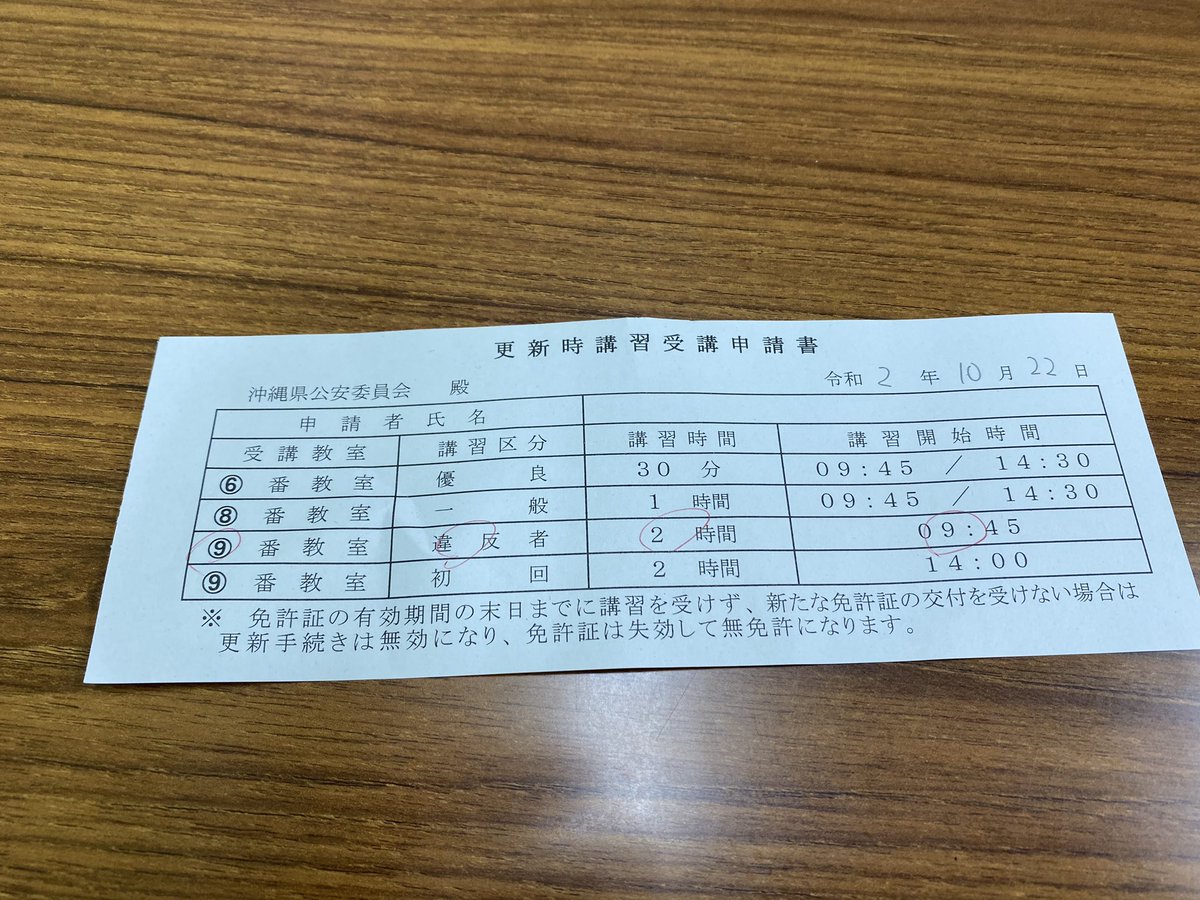 更新時講習受講申請書
沖縄県公安委員会 殿 令和 2 年 10 月 22 日
申請者氏名
受講教室 講習区分 講習時間 講習開始時間
⑥ 番教室 優良 30 分 09:45 / 14:30
⑧ 番教室 一般 1 時間 09:45 / 14:30
⑨ 番教室 違反者 2 時間 09:45
⑨ 番教室 初回 2 時間 14:00
※ 免許証の有効期間の末日までに講習を受けず、新たな免許証の交付を受けない場合は
更新手続きは無効になり、免許証は失効して無免許になります。